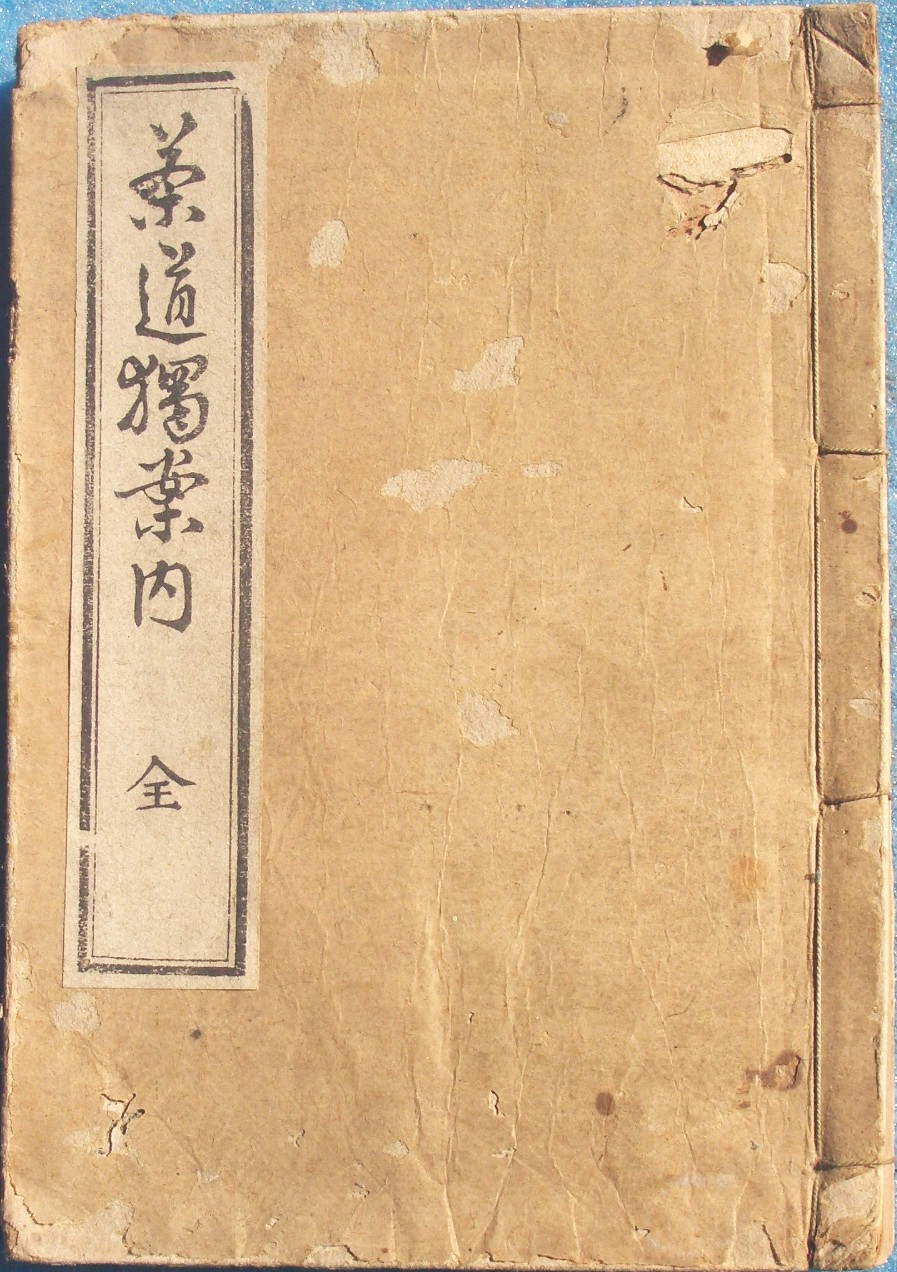 茶道獨案内 全